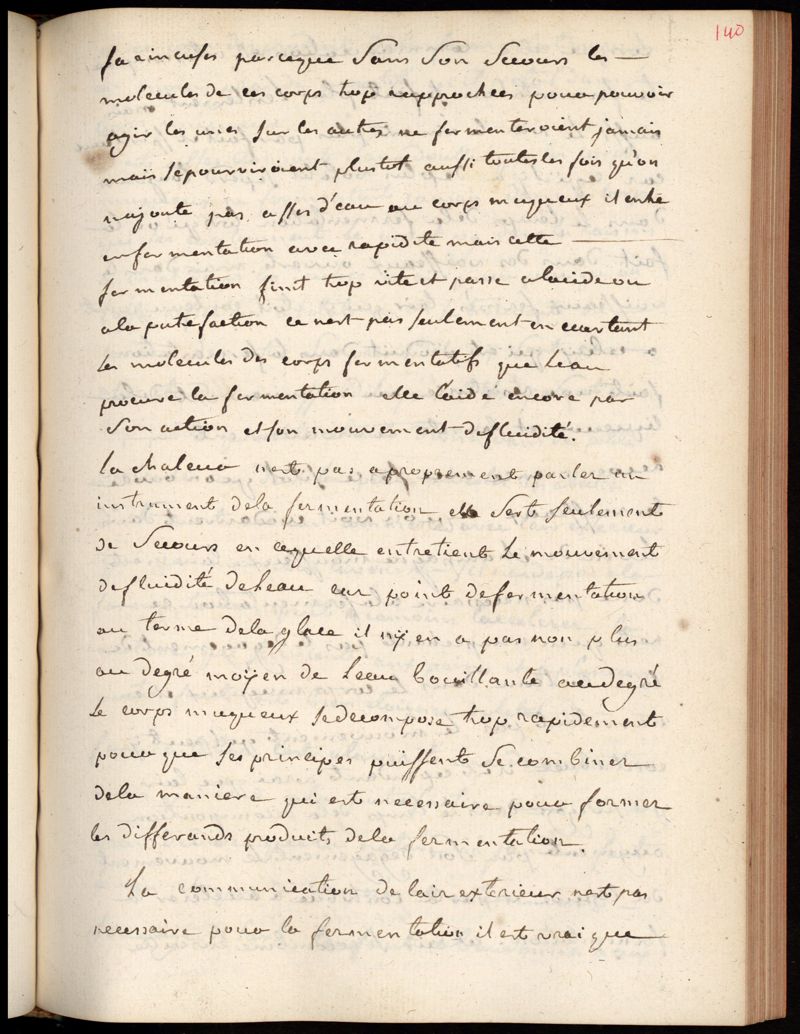 140
farineuses parceque Sans Son Secours les —
molecules de ces corps trop rapprochées pour pouvoir
agir les unes sur les autres ne fermenteroient jamais
mais se pourriroient plustot aussi toutes les fois qu'on
najoute pas asses d'eau au corps muqueux il entre
en fermentation avec rapidité mais cette —
fermentation finit trop vite et passe a lacide ou
a la putrefaction ce nest pas seulement en ecartant
les molecules des corps fermentatifs que Leau
procure la fermentation elle l'aide encore par
Son action et son mouvement de fluidité.
la chaleur nest pas a proprement parler un
instrument dela fermentation elle Sert Seulement
de Secours en ce quelle entretient Le mouvement
de fluidité de Leau car point de fermentation
au terme dela glace il n'y en a pas non plus
au degré moÿen de Leau bouillante au degré
Le corps muqueux se decompose trop rapidement
pour que ses principes puissent Se combiner
dela maniere qui est necessaire pour former
les differands produits dela fermentation.
La communication de lair exterieur nest pas
necessaire pour la fermentation il est vrai que